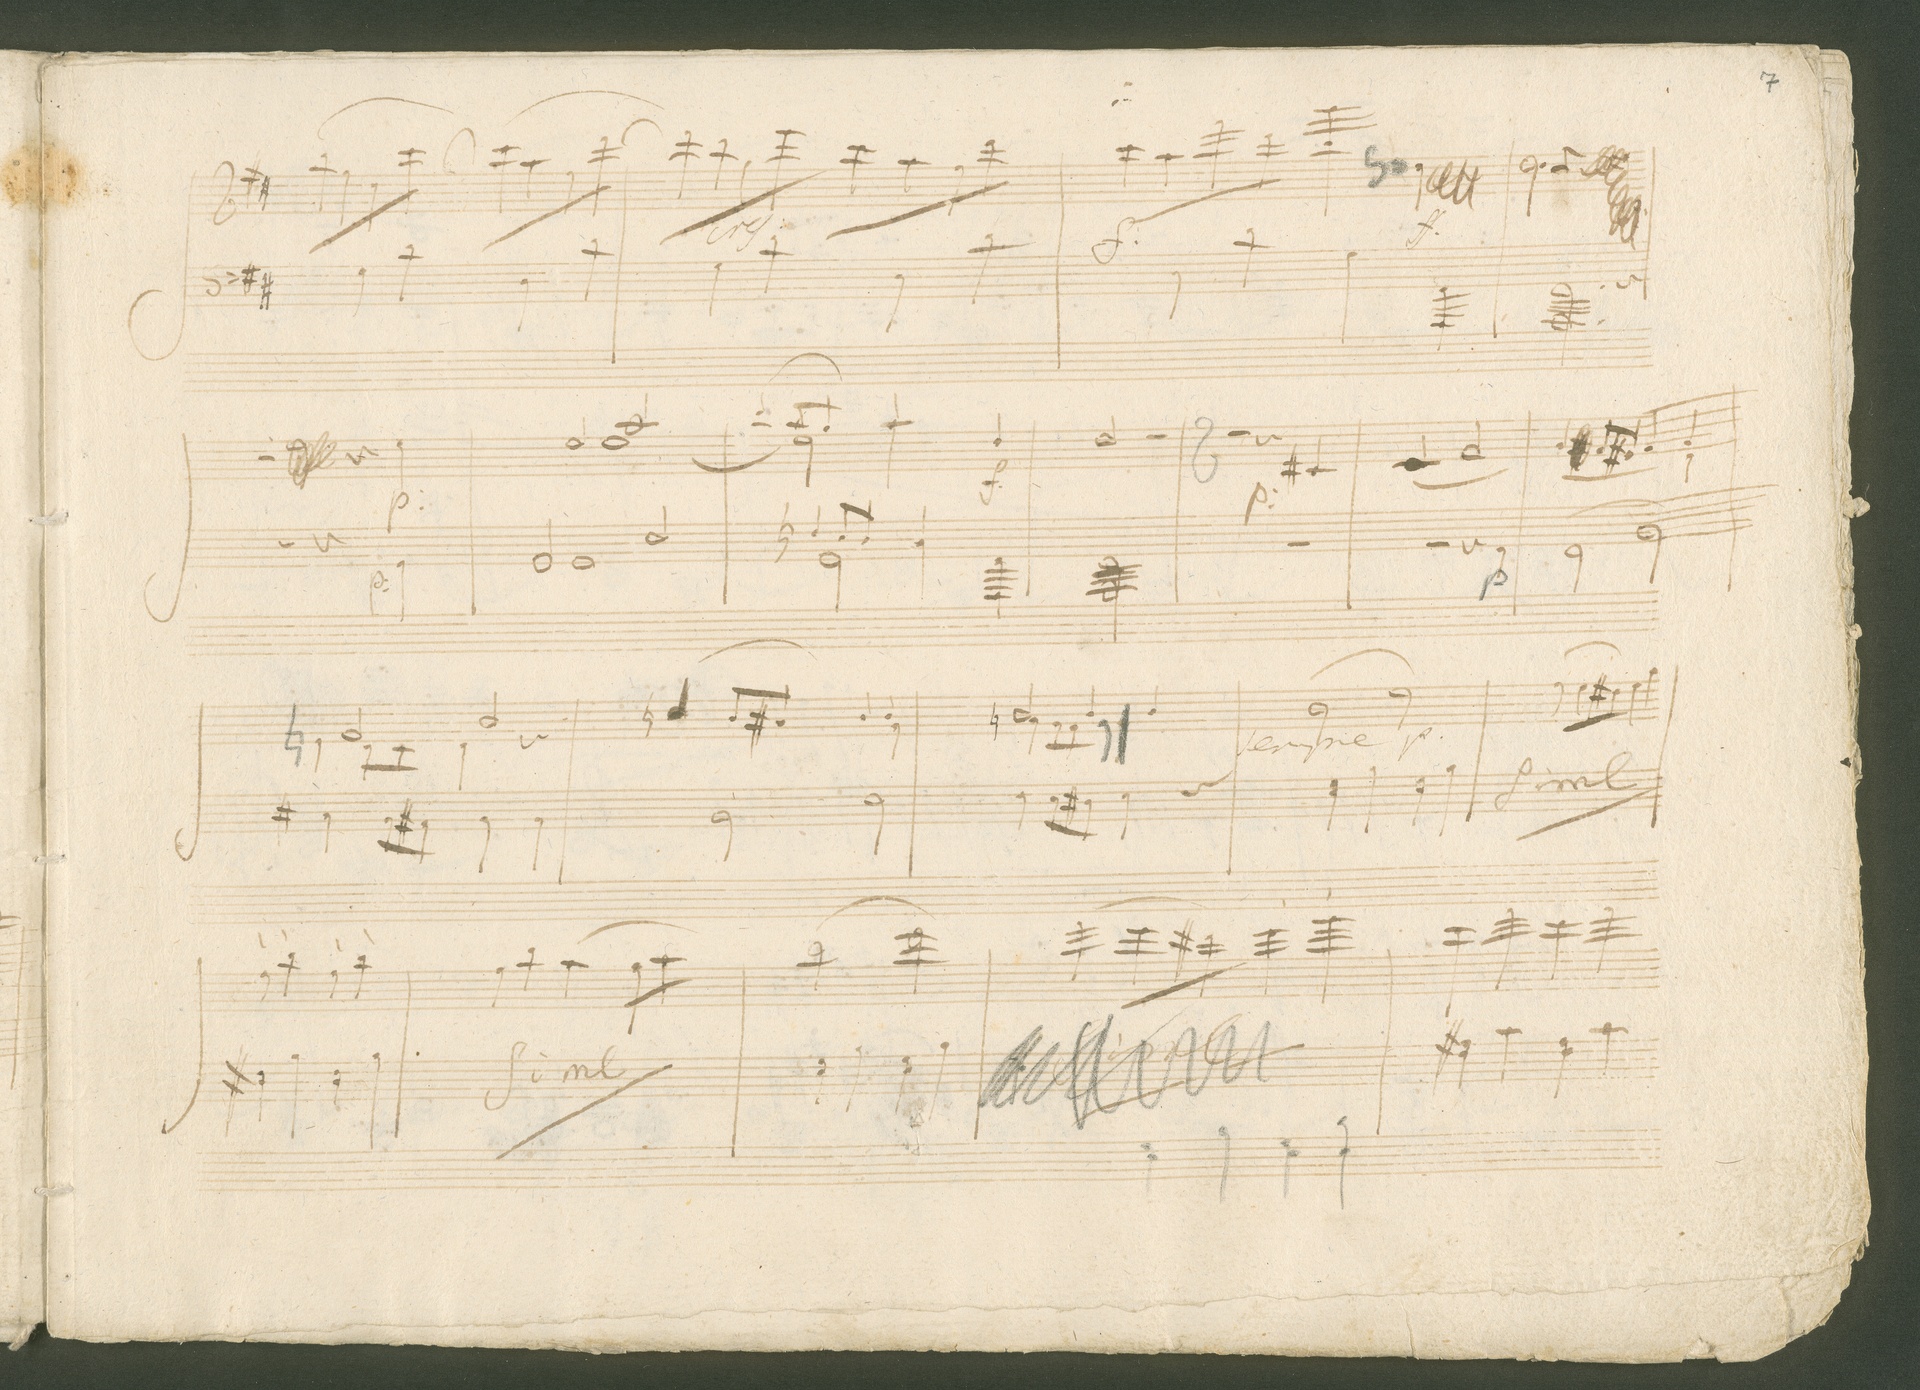 7
cres:
f: f.
p: f. p:
p: p
sempre p.
Siml
Siml